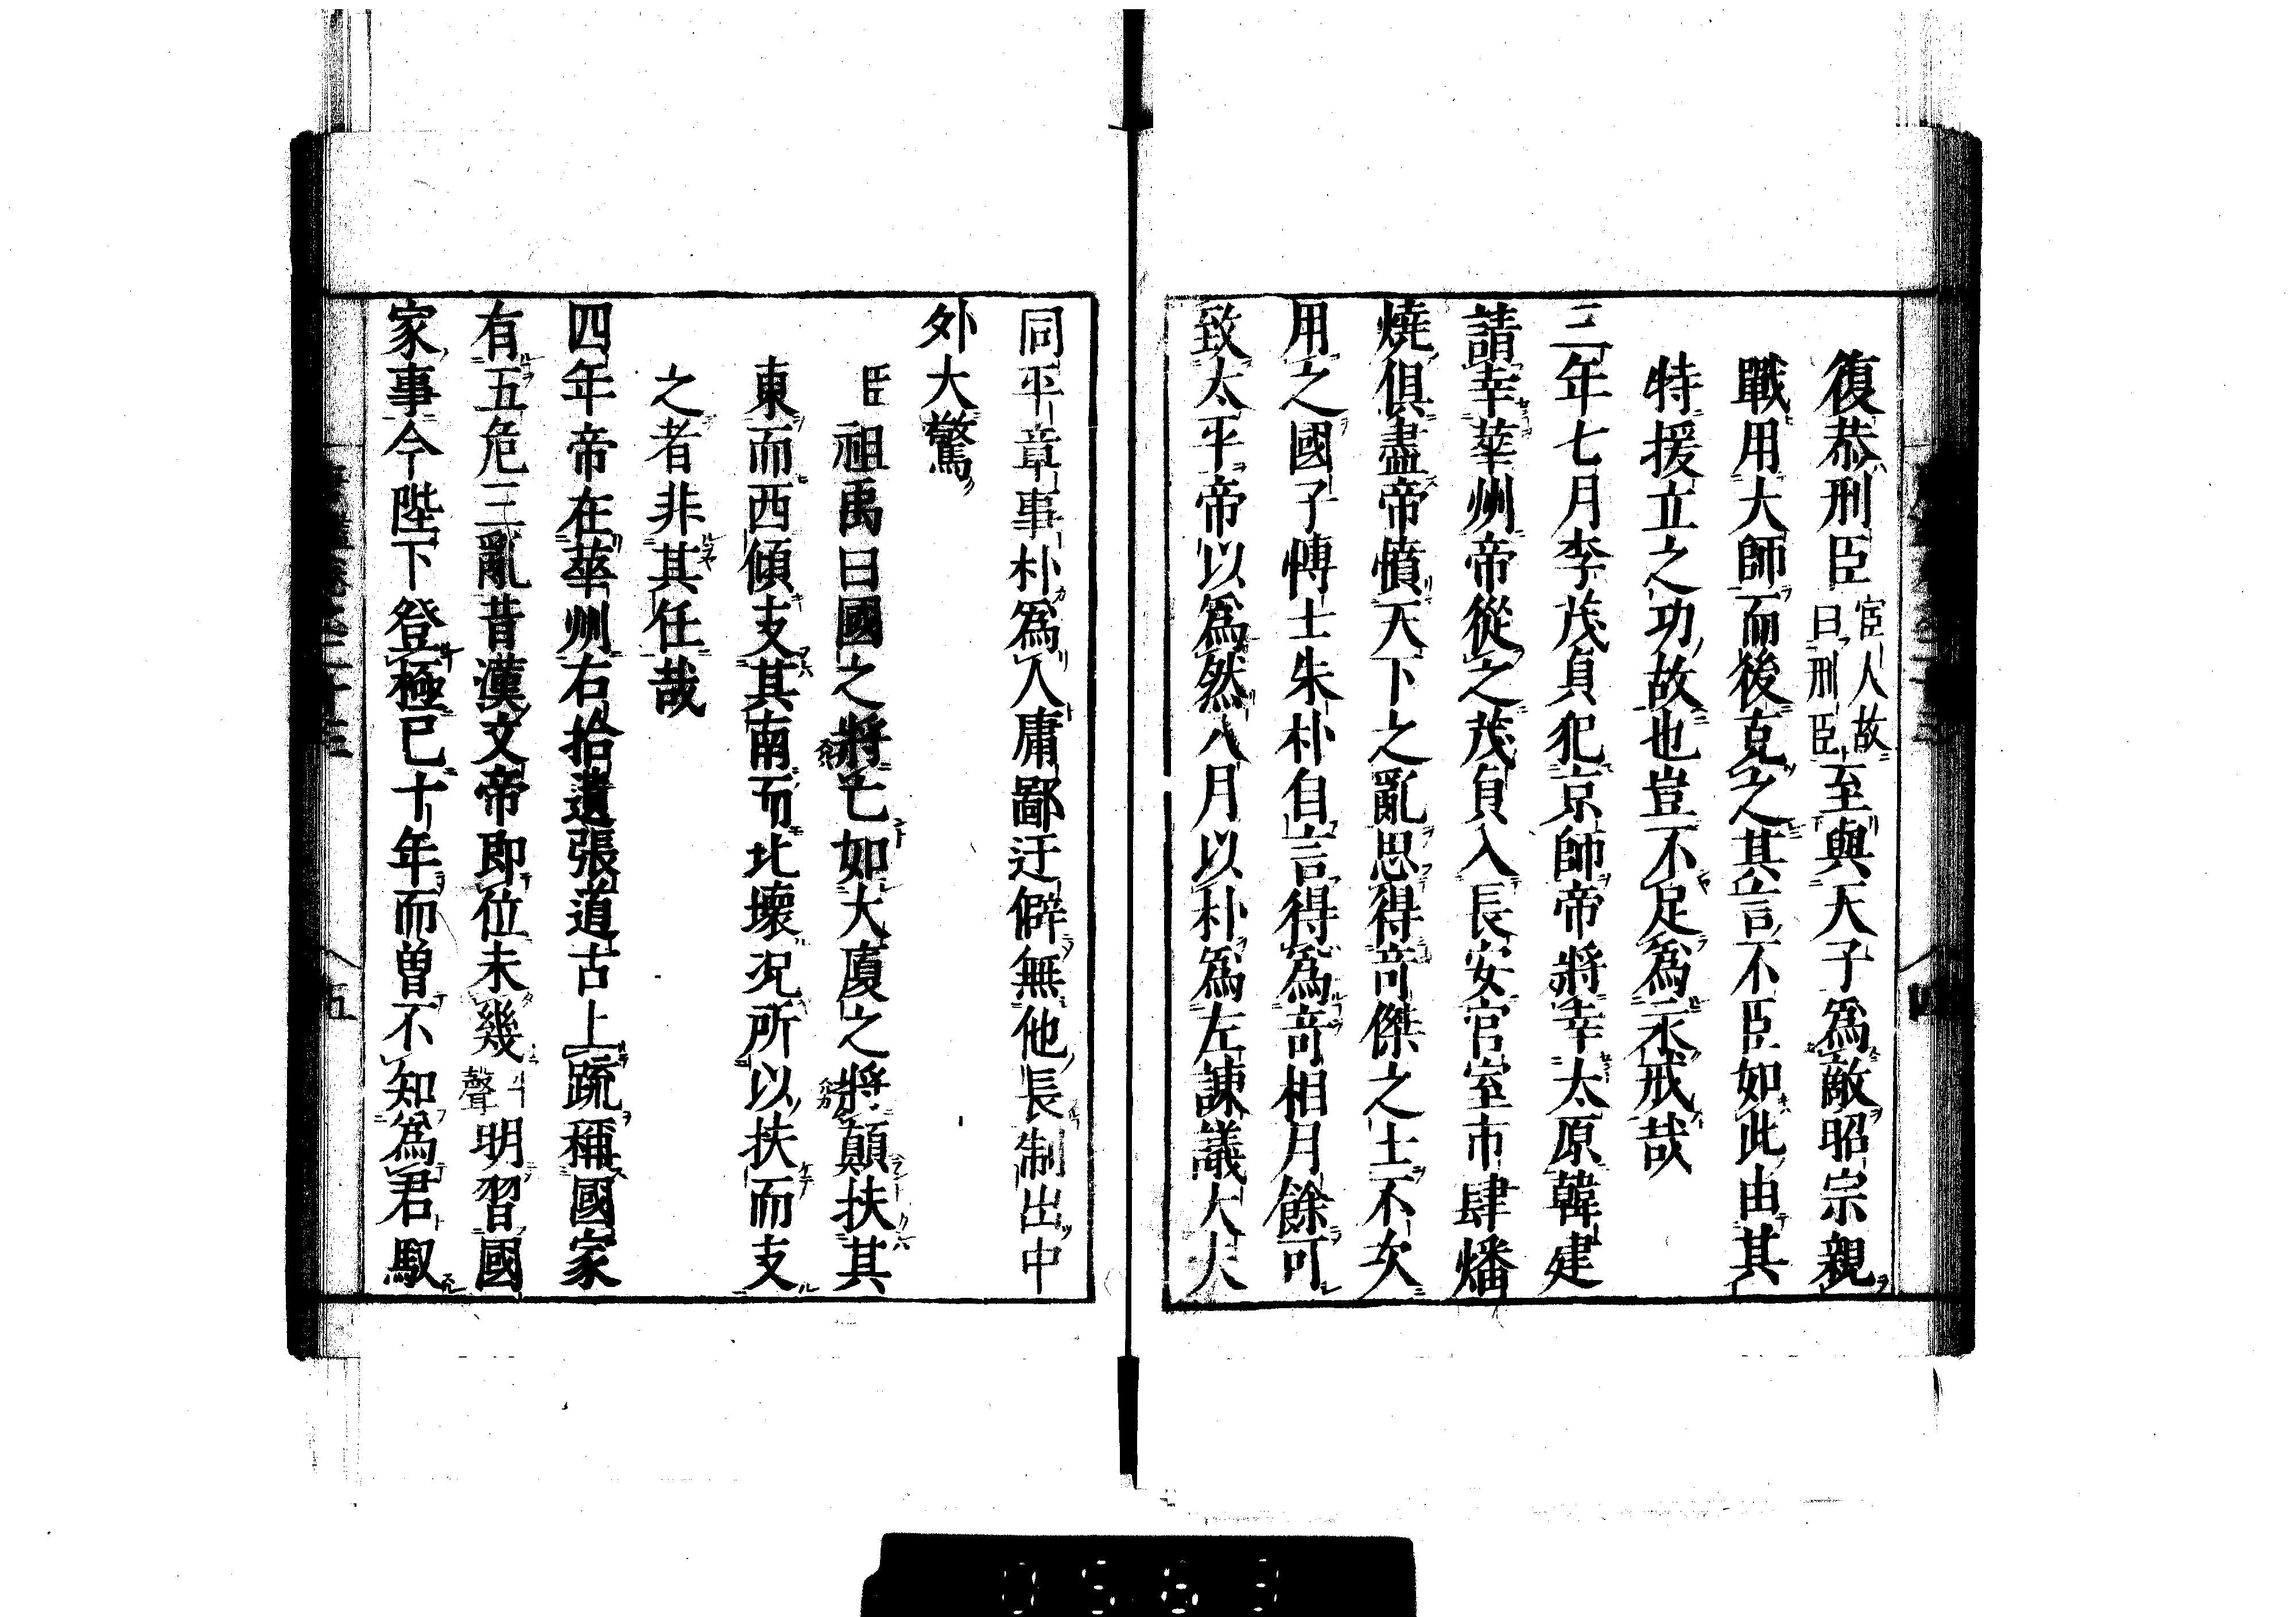 復恭刑臣宦人故曰刑臣至與天子爲敵昭宗親
戰用大師而後克之其言不臣如此由其
特援立之功故也豈不足爲永戒哉
三年七月李茂貞犯京師帝將幸太原韓建
請幸華州帝從之茂貞入長安宮室市肆燔
燒俱盡帝憤天下之亂思得奇傑之士不次
用之國子博士朱朴自言得爲奇相月餘可
致太平帝以爲然八月以朴爲左諫議大夫
同平章事朴爲人庸鄙迂僻無他長制出中
外大驚
臣祖禹曰國之將亡如大廈之將顛扶其
東而西傾支其南而北壞况所以扶而支
之者非其任哉
四年帝在華州右拾遺張道古上䟽稱國家
有五危三亂昔漢文帝即位未幾上聲明習國
家事今陛下登極已十年而曽不知爲君馭